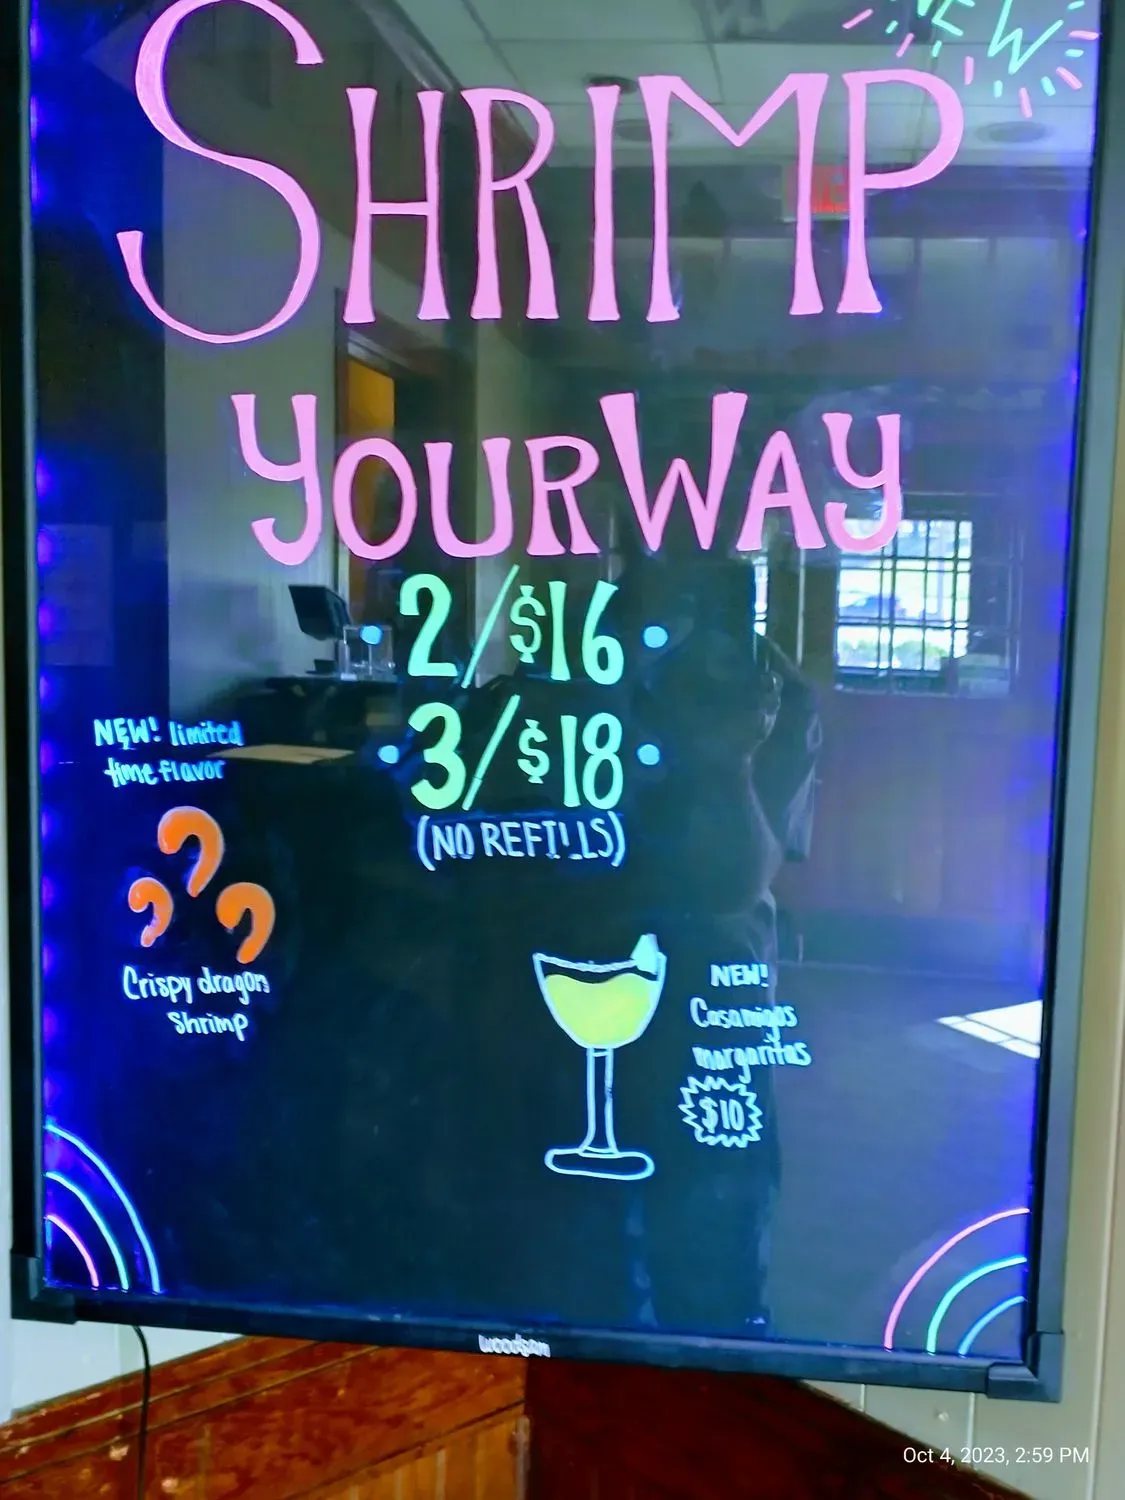 NEW
SHRIMP
YOUR WAY
2/$16
3/$18
(NO REFILLS)
NEW! limited
time flavor
Crispy dragon
Shrimp
NEW!
Casamigos
margaritas
$10
woodsam
Oct 4, 2023, 2:59 PM